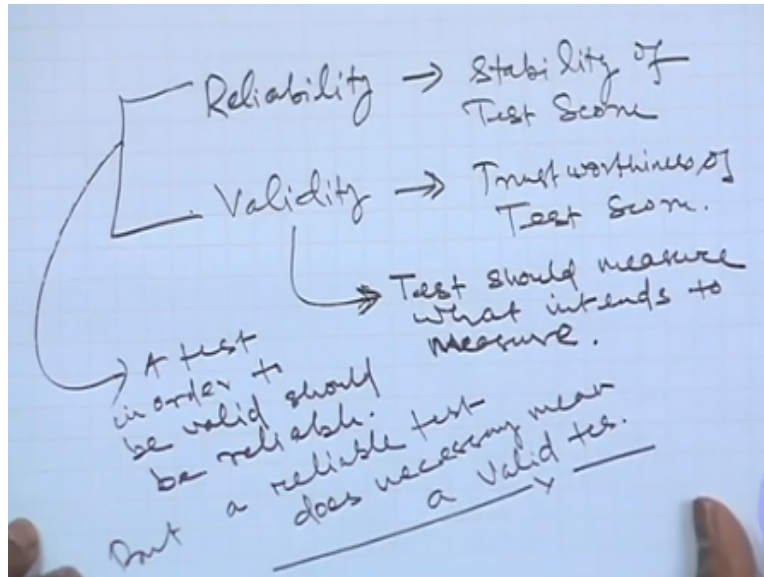 Reliability → Stability of
Test Score
Validity → Trustworthiness of
Test Score.
Test should measure
what intends to
measure.
A test
in order to
be valid should
be reliable.
But a reliable test
does necessary mean
a valid tes.